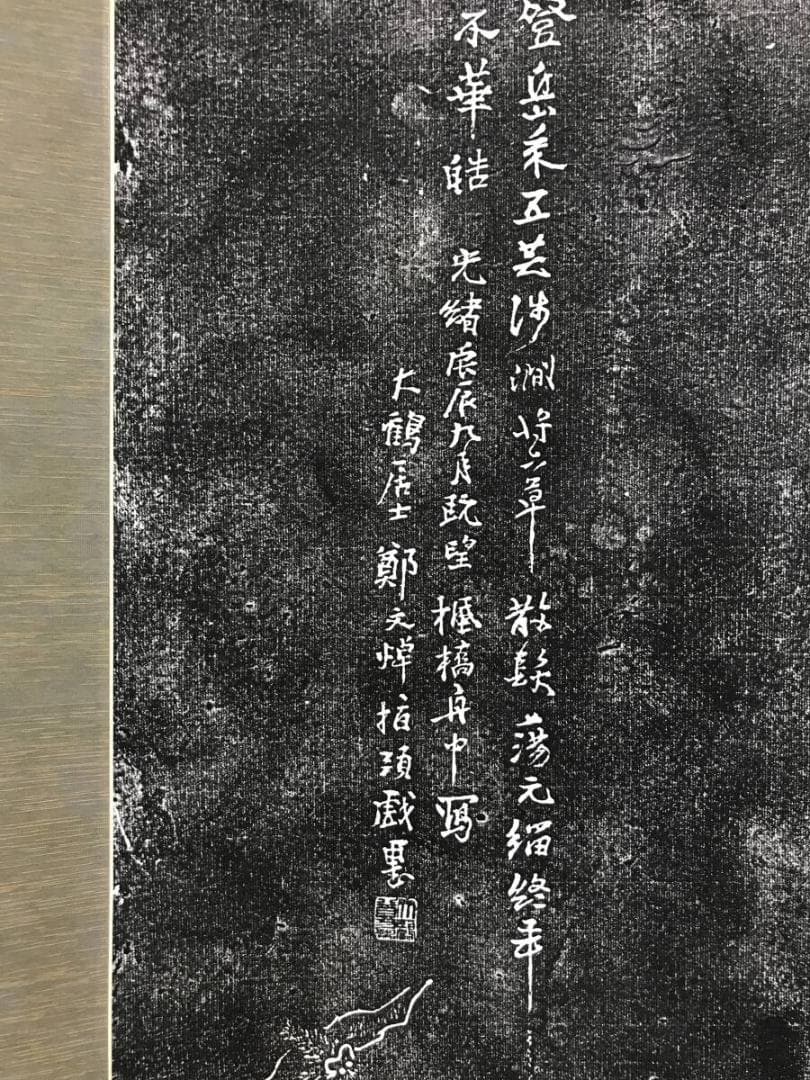 登岳采五芝涉澗將六草 散髮蕩元緇終年
不華皓 光緒庚辰九月既望 楓橋舟中寫
大鶴居士 鄭文焯指頭戲墨